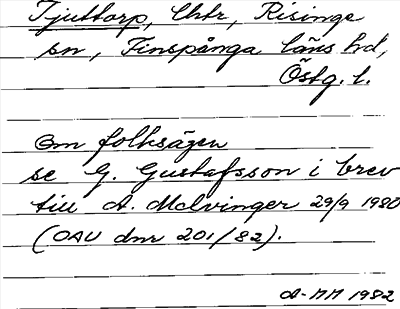 Tjuttorp, Chtr, Risinge
sn, Finspånga läns hd,
Östg. l.
Om folksägen
se G. Gustafsson i brev
till A. Malvinger 29/9 1980
(OAU dnr 201/82).
A-MM 1982